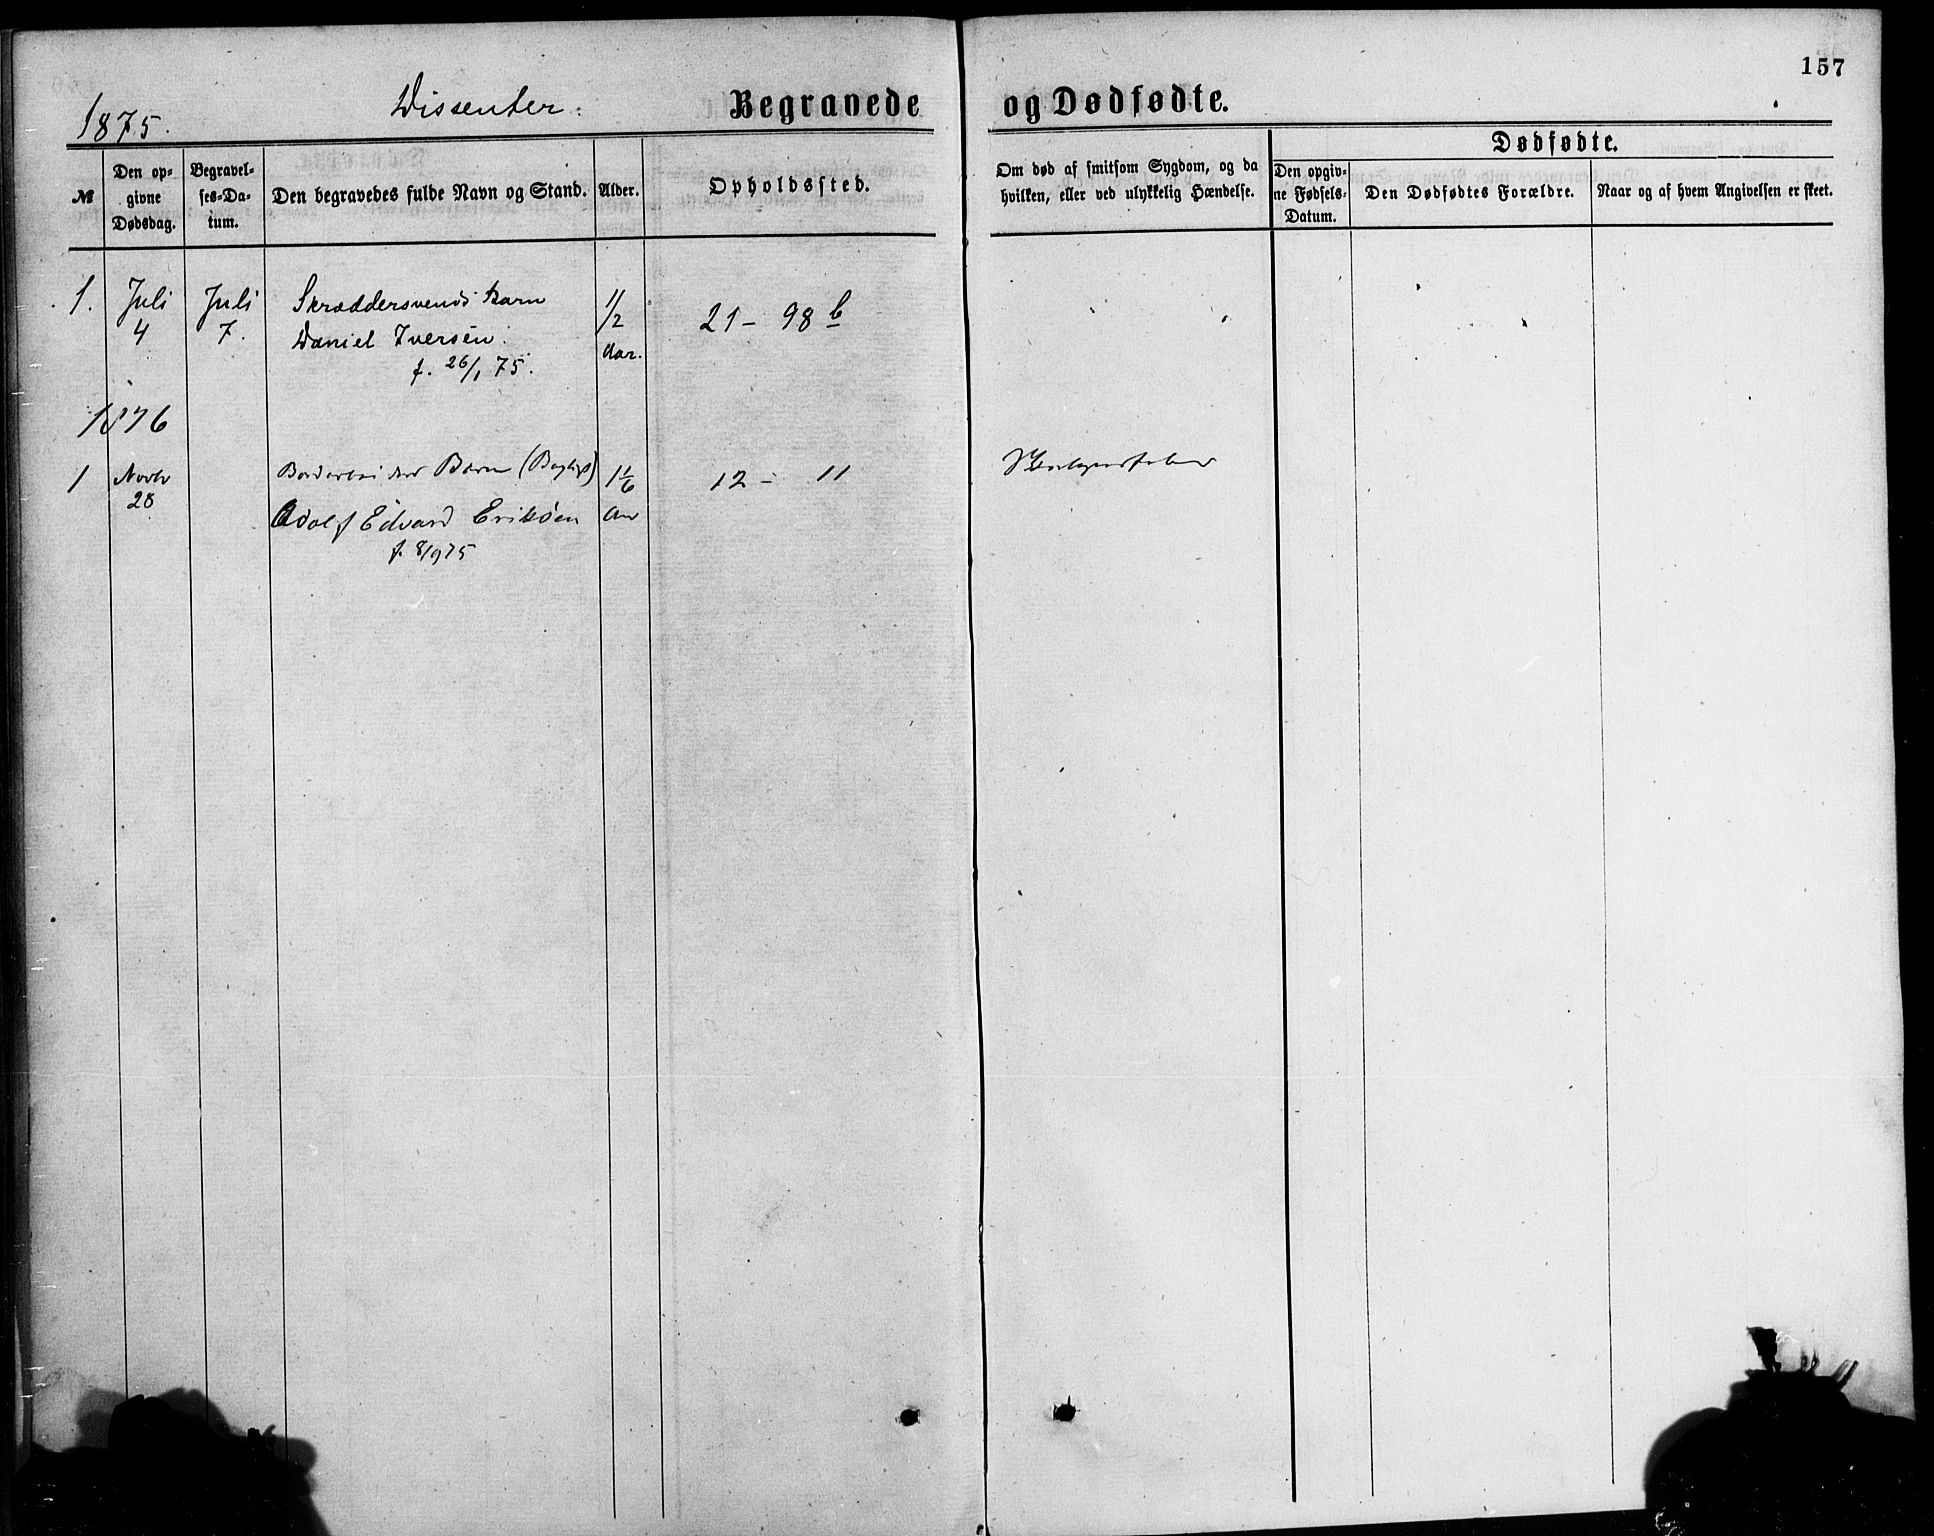 157
1875.
Dissenter.
Begravede og Dødfødte.
№
Den op-
givne
Dødsdag.
Begravel-
ses-Da-
tum.
Den begravedes fulde Navn og Stand.
Alder.
Opholdssted.
Om død af smitsom Sygdom, og da
hvilken, eller ved ulykkelig Hændelse.
Dødfødte.
Den opgiv-
ne Fødsels-
Datum.
Den Dødfødtes Forældre.
Naar og af hvem Angivelsen er skeet.
1.
Juli
4
Juli
7.
Skræddersvends barn
Daniel Iversen.
f. 26/1 75.
1/2
Aar.
21 - 98 b
1876
1
Novbr
28
Barn
Adolf Edvard Eriksen
f. 8/9 75
1 1/6
Aar
12 - 11